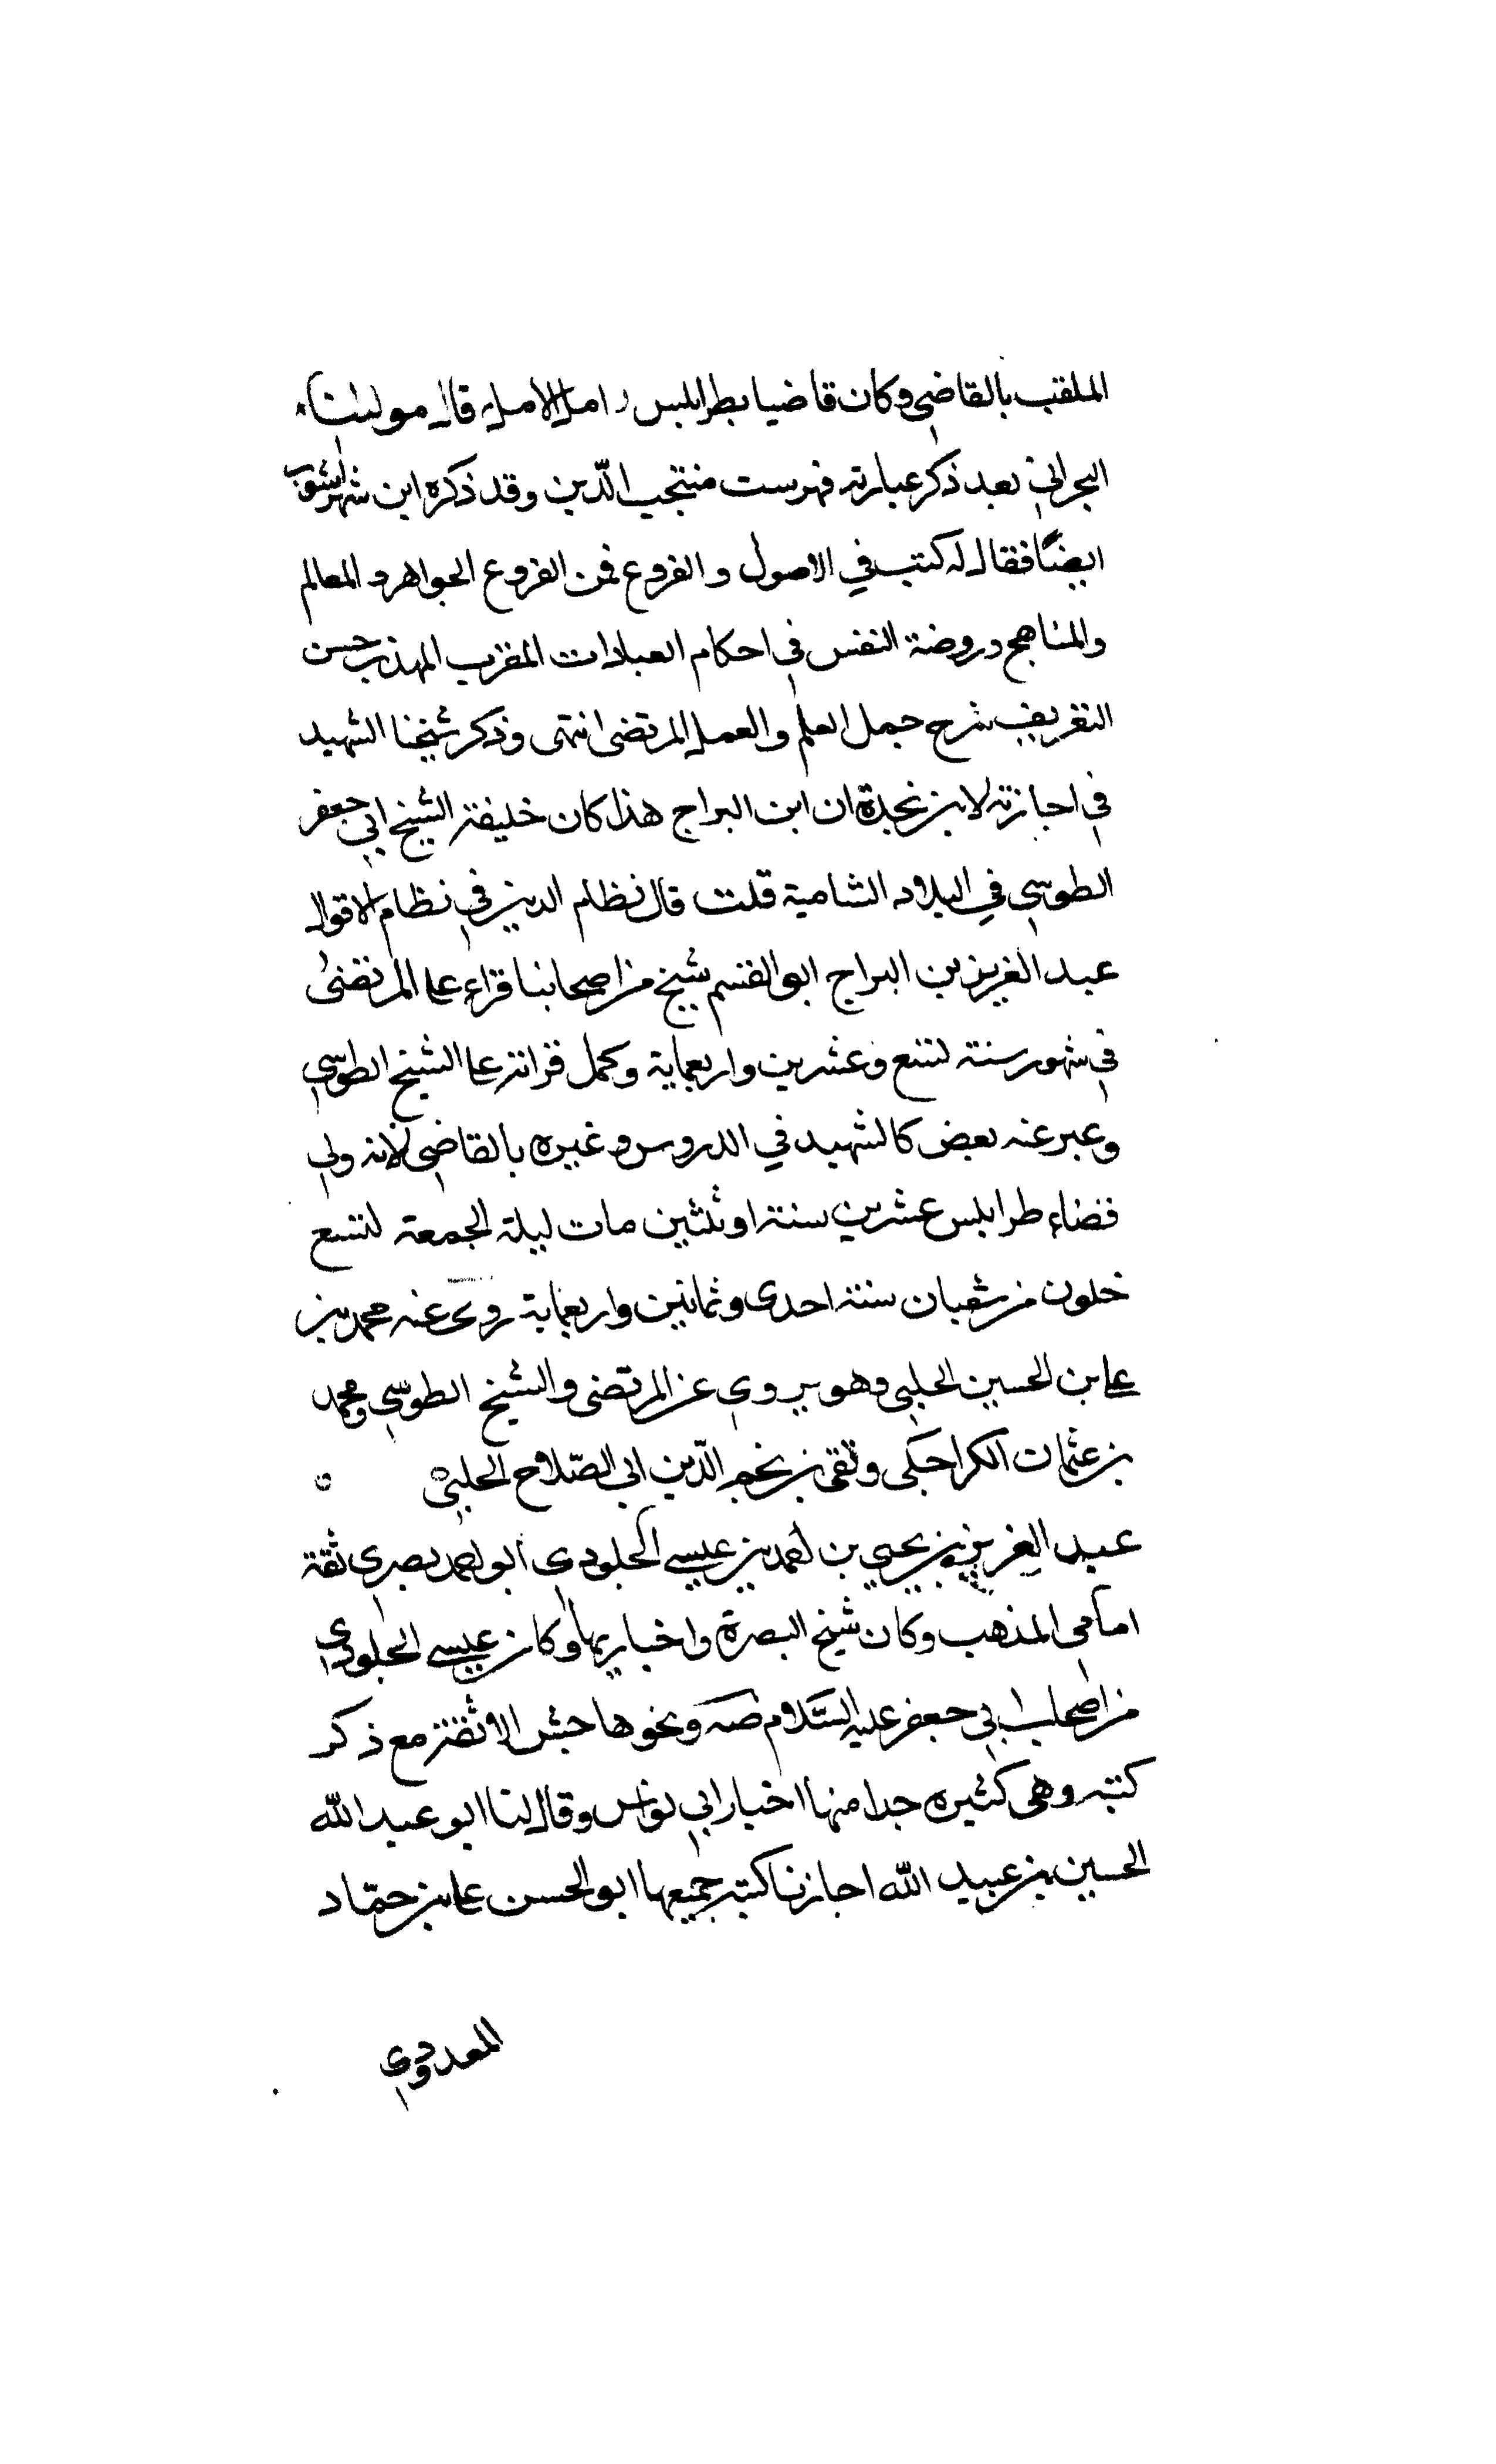 الملقب بالقاضي وكان قاضيا بطرابلس امل الامل قال مولينا
البحراني بعد ذكر عبارته فهرست منتجب الدّين وقد ذكره ابن شهراشوب
ايضًا فقال له كتب في الاصول والفروع فمن الفروع الجواهر والمعالم
والمناهج وروضة النفس في احكام العبادات المقرب المهذب حسن
التقريف شرح جمل العلم والعمل للمرتضى انتهى وذكر شيخنا الشهيد
في اجازته لابن نجدة ان ابن البراج هذا كان خليفة الشيخ ابي جعفر
الطوسي في البلاد الشامية قلت قال نظام الدين في نظام الاقوال
عبد العزيز بن البراج ابو القسم شيخ من اصحابنا قراء على المرتضى
في شهور سنة تسع وعشرين واربعماية وكمل قرائته على الشيخ الطوسي
وعبر عنه بعض كالشهيد في الدروس وغيره بالقاضي لانه ولي
قضاء طرابلس عشرين سنة او ثلثين مات ليلة الجمعة لتسع
خلون من شعبان سنة احدى وثمانين واربعماية روى عنه محمد بن
على بن الحسين الحلبي وهو يروي عن المرتضى والشيخ الطوسي ومحمد
بن عثمان الكراجكى وتقى بن نجم الدّين ابي الصّلاح الحلبي ه
عبد العزيز بن يحيي بن احمد بن عيسى الجلودي ابو احمد بصرى ثقة
امامى المذهب وكان شيخ البصرة واخباريها وكان عيسى الجلودي
من اصحاب ابي جعفر عليه السَّلام صه ونحوها جش الا ثقة مع ذكر
كتبه وهى كثيره جدا منها اخبار ابي نواس وقال لنا ابو عبد الله
الحسين بن عبيد الله اجازنا كتبه جميعها ابو الحسن على بن حمّاد
العدوي